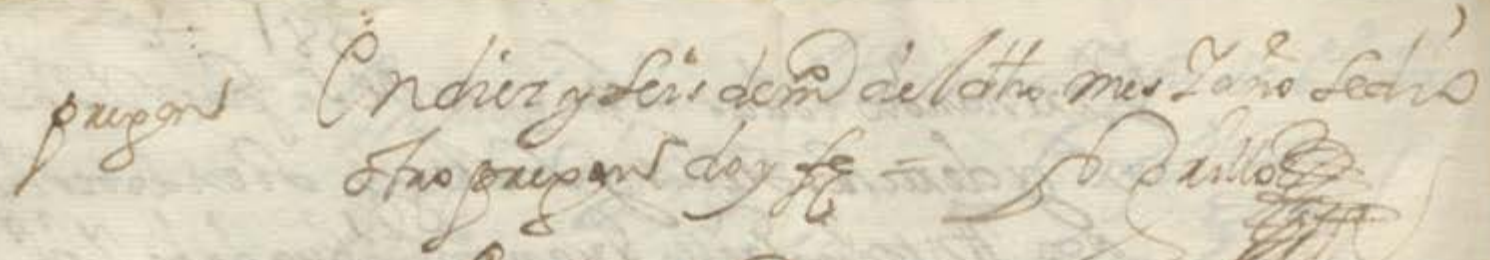 pregon
En diez y seis de mo del dho mes Y año se dio
otro pregon doy fe =